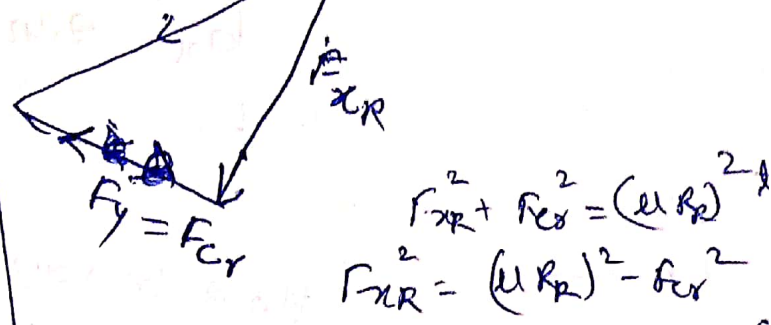 F_xR
F_y = F_cr
F_xR² + F_cr² = (μ R_R)²
F_xR² = (μ R_R)² - F_cr²